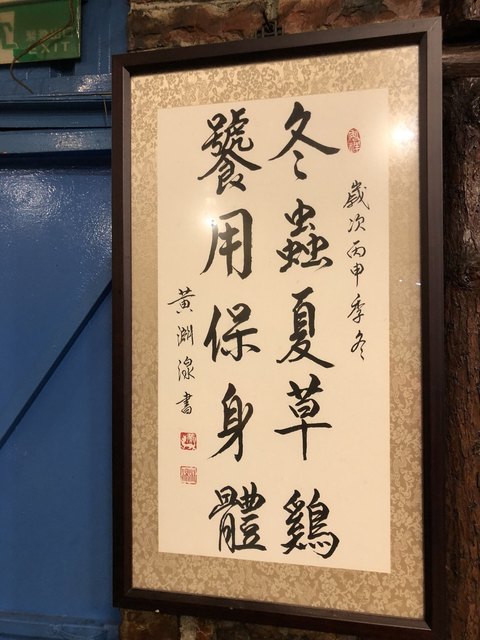 EXIT
歲次丙申季冬
冬蟲夏草鷄
饕用保身體
黃淵湶書